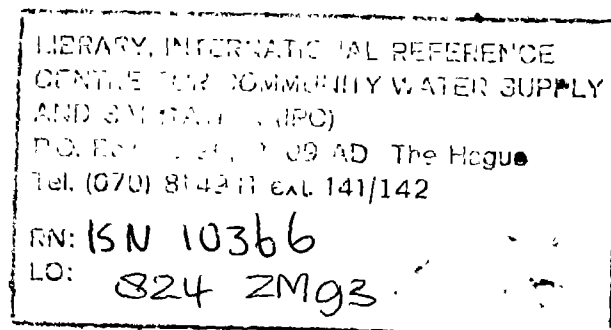 LIBRARY, INTERNATIONAL REFERENCE
CENTRE FOR COMMUNITY WATER SUPPLY
AND SANITATION (IRC)
P.O. AD The Hague
Tel. (070) ext. 141/142
RN: ISN 10366
LO: 824 ZM93